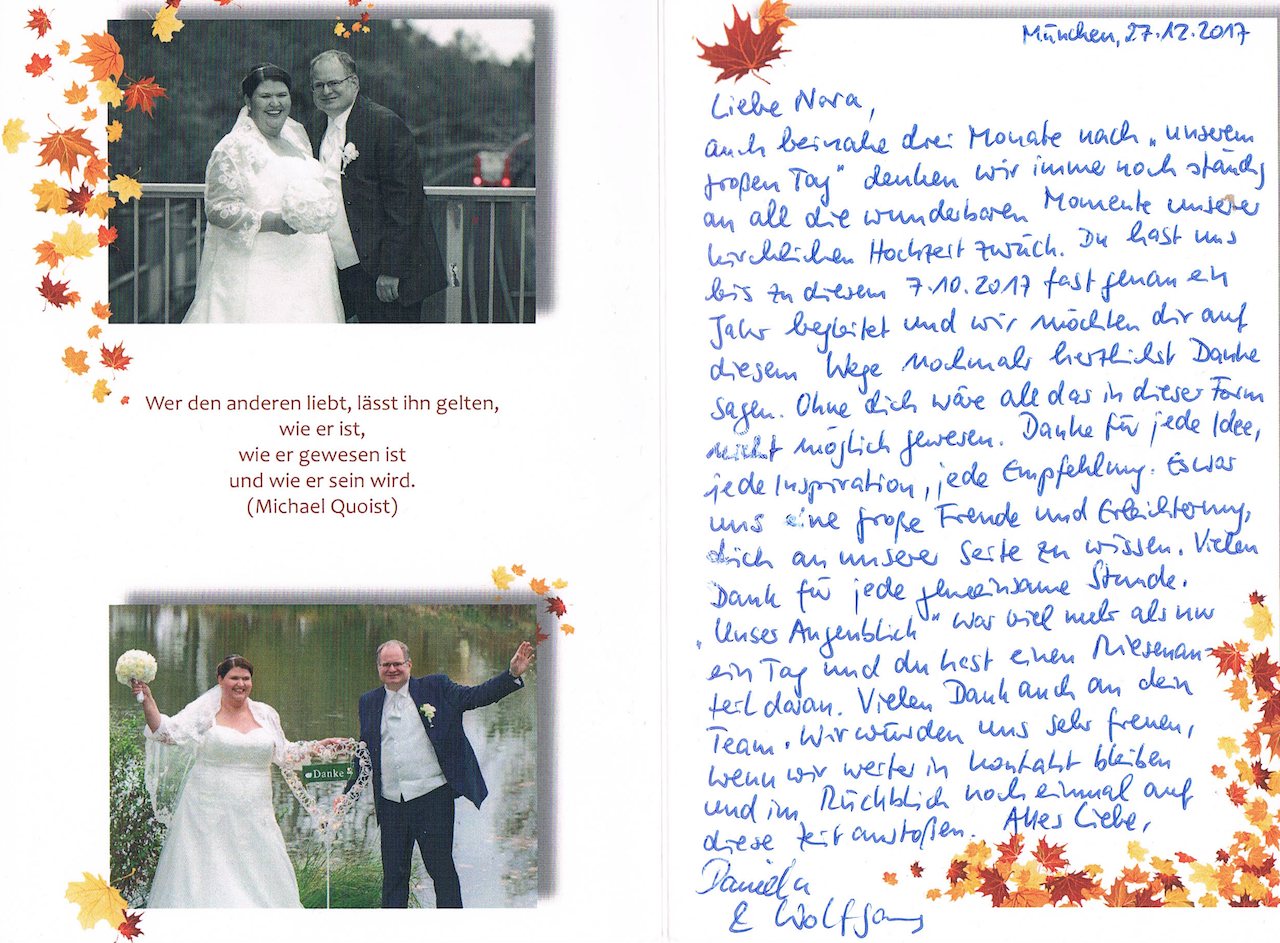 Wer den anderen liebt, lässt ihn gelten,
wie er ist,
wie er gewesen ist
und wie er sein wird.
(Michael Quoist)
Danke
München, 27.12.2017
Liebe Nora,
auch beinahe drei Monate nach „unserem
großen Tag" denken wir immer noch ständig
an all die wunderbaren Momente unserer
kirchlichen Hochzeit zurück. Du hast uns
bis zu diesem 7.10.2017 fast genau ein
Jahr begleitet und wir möchten dir auf
diesem Wege nochmals herzlichst Danke
sagen. Ohne dich wäre all das in dieser Form
nicht möglich gewesen. Danke für jede Idee,
jede Inspiration, jede Empfehlung. Es war
uns eine große Freude und Erleichterung,
dich an unserer Seite zu wissen. Vielen
Dank für jede gemeinsame Stunde.
„Unser Augenblick" war viel mehr als nur
ein Tag und du hast einen Riesenan-
teil daran. Vielen Dank auch an dein
Team. Wir würden uns sehr freuen,
wenn wir weiter in Kontakt bleiben
und im Rückblick noch einmal auf
diese Zeit anstoßen. Alles Liebe,
Daniela
& Wolfgang